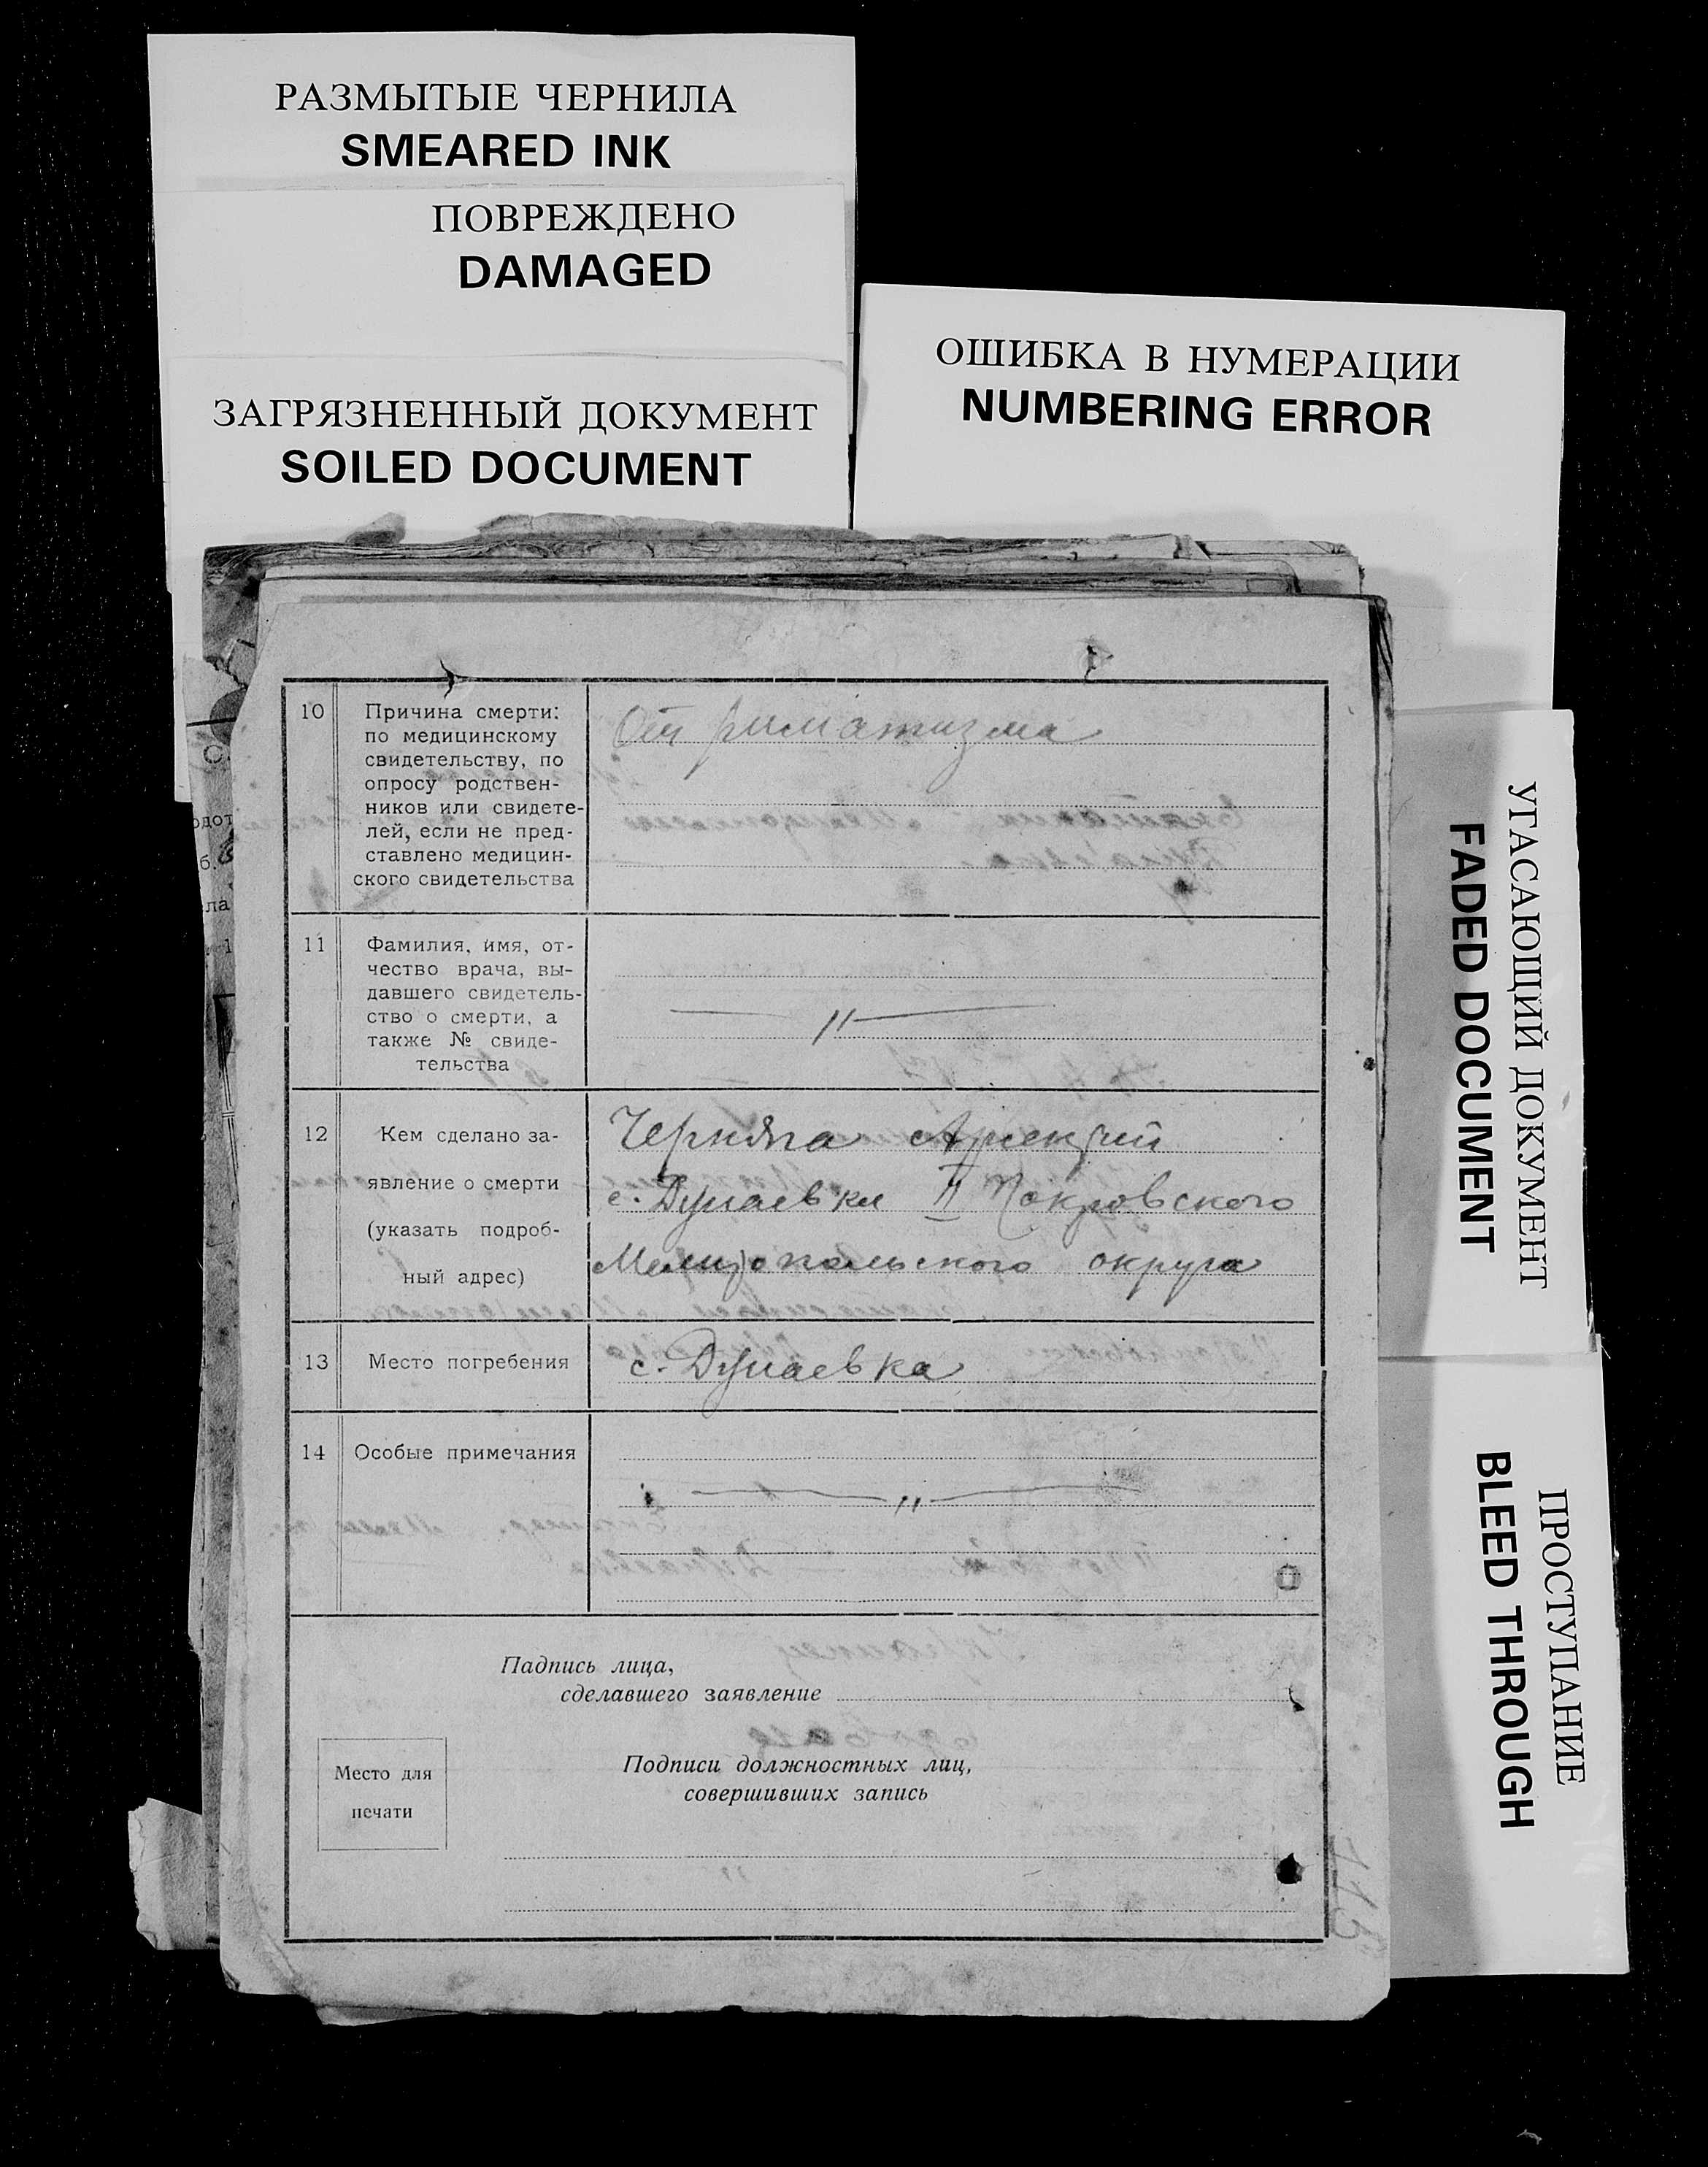 РАЗМЫТЫЕ ЧЕРНИЛА
SMEARED INK
ПОВРЕЖДЕНО
DAMAGED
ЗАГРЯЗНЕННЫЙ ДОКУМЕНТ
SOILED DOCUMENT
ОШИБКА В НУМЕРАЦИИ
NUMBERING ERROR
УГАСАЮЩИЙ ДОКУМЕНТ
FADED DOCUMENT
ПРОСТУПАНИЕ
BLEED THROUGH
10
Причина смерти:
по медицинскому
свидетельству, по
опросу родствен-
ников или свидете-
лей, если не пред-
ставлено медицин-
ского свидетельства
От риматизма
11
Фамилия, имя, от-
чество врача, вы-
давшего свидетель-
ство о смерти, а
также № свиде-
тельства
— " —
12
Кем сделано за-
явление о смерти
(указать подроб-
ный адрес)
Черняга
с. Дунаевки II Покровского
Мелитопольского округа
13
Место погребения
с. Дунаевка
14
Особые примечания
— " —
Падпись лица,
сделавшего заявление
Место для
печати
Подписи должностных лиц,
совершивших запись
115